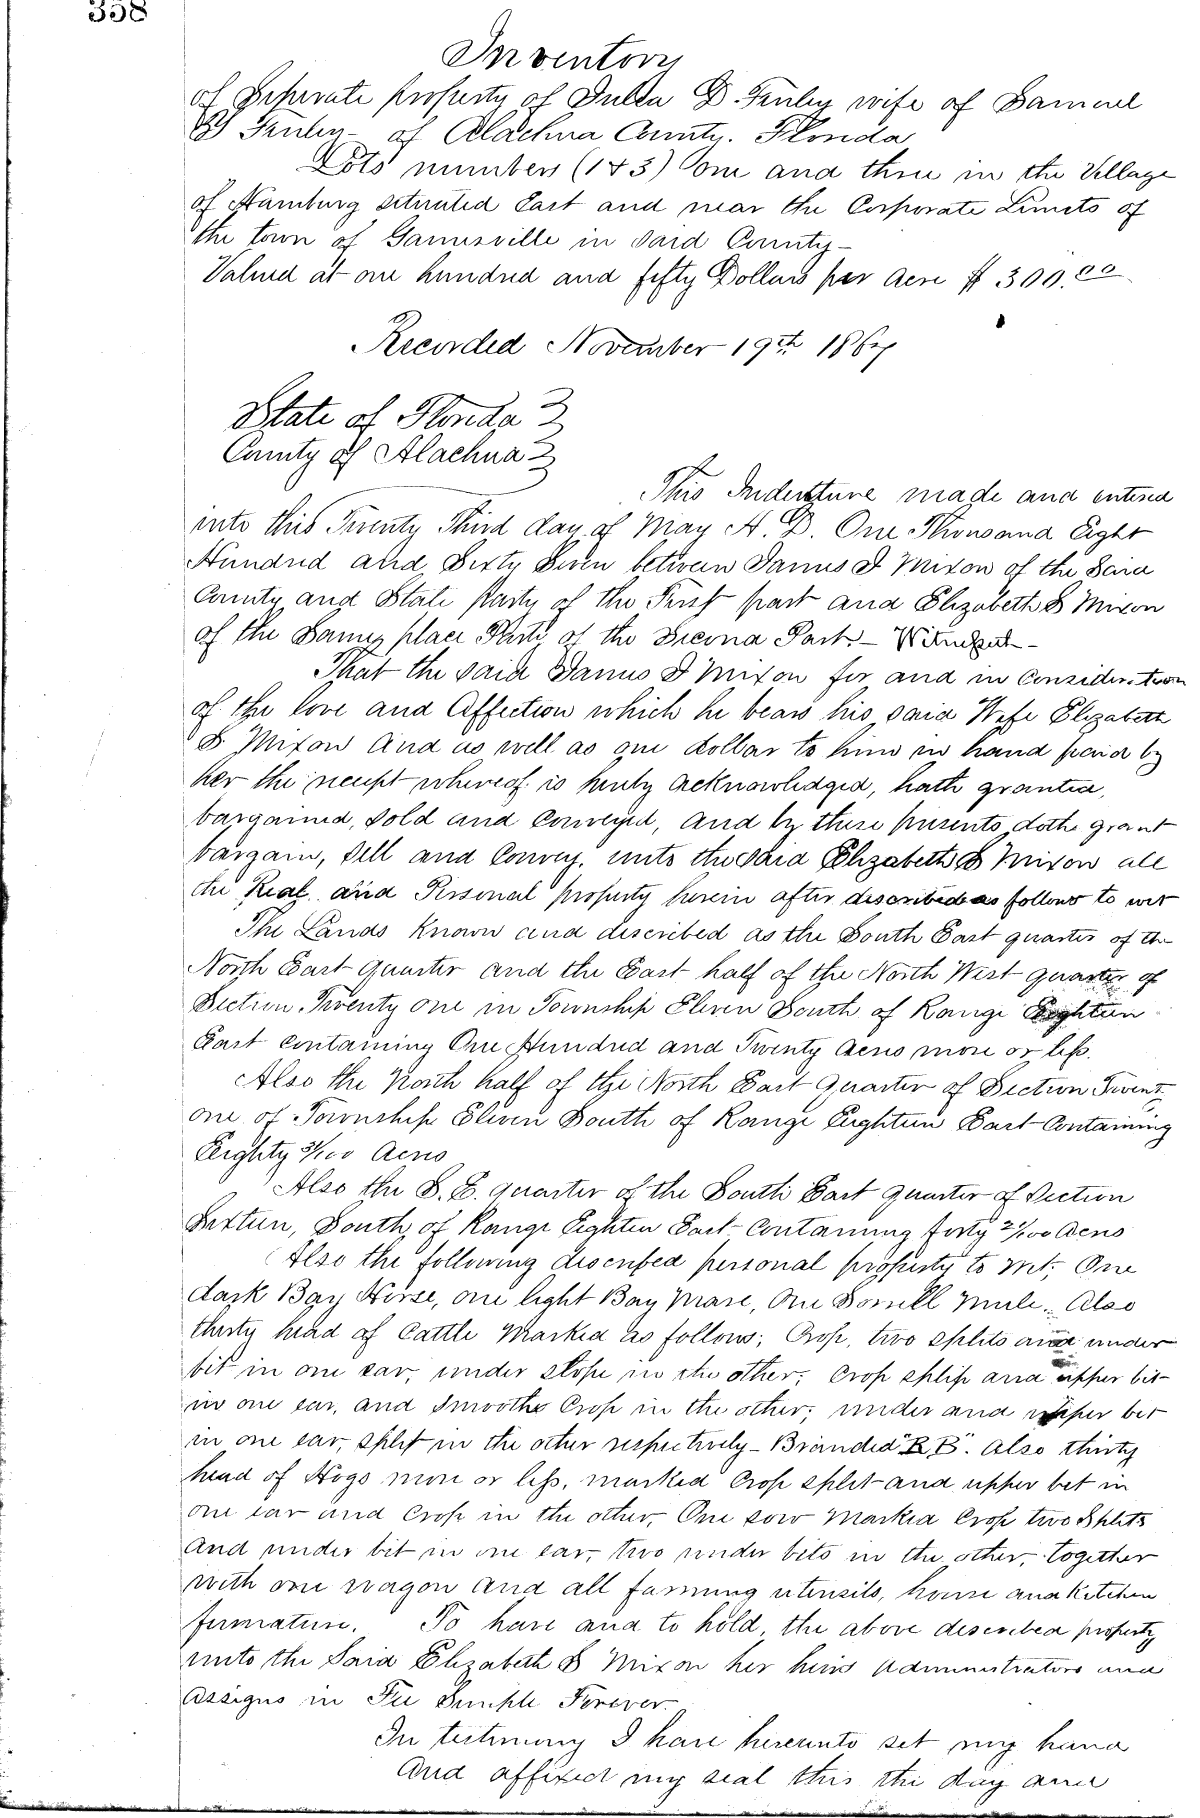 358
Inventory
of Seperate property of Julia D. Fenley wife of Samuel
Fenley - of Alachua County. Florida
Lots numbers (1 & 3) one and three in the Village
of Hamburg situated East and near the Corporate Limits of
the town of Gainesville in said County -
Valued at one hundred and fifty Dollars per Acre $ 300.00
Recorded November 19th 1867
State of Florida }
County of Alachua }
This Indenture made and entered
into this Twenty Third day of May A. D. One Thousand Eight
Hundred and Sixty Seven between James J Mixon of the Said
County and State Party of the First part and Elizabeth S Mixon
of the Same place Party of the Second Part. - Witnesseth -
That the said James J Mixon for and in Consideration
of the love and Affection which he bears his said Wife Elizabeth
S Mixon And as well as one dollar to him in hand paid by
her the receipt whereof is hereby acknowledged, hath granted,
bargained, sold and Conveyed, and by these presents doth grant
bargain, sell and Convey. unto the said Elizabeth S Mixon all
the Real and Personal property herein after described as follows to wit
The Lands known and described as the South East quarter of the
North East quarter and the East half of the North West quarter of
Section Twenty one in Township Eleven South of Range Eighteen
East containing One Hundred and Twenty Acres more or less.
Also the North half of the North East Quarter of Section Twenty
one of Township Eleven South of Range Eighteen East Containing
Eighty /100 Acres
Also the S. E. quarter of the South East quarter of Section
Sixteen, South of Range Eighteen East Containing forty 21/100 Acres
Also the following described personal property to wit; One
dark Bay Horse, one light Bay Mare, One Sorrell Mule. Also
thirty head of Cattle Marked as follows; Crop, two splits and under
bit in one ear, under slope in the other; Crop split and upper bit
in one ear, and Smooth Crop in the other; under and upper bit
in one ear, split in the other respectively - Branded "R B". Also thirty
head of Hogs more or less, marked Crop split and upper bit in
one ear and Crop in the other, One sow Marked Crop two Splits
and under bit in one ear, two under bits in the other, together
with one wagon and all farming utensils, house and Kitchen
furniture. To have and to hold, the above described property
unto the Said Elizabeth S Mixon her heirs Administrators and
assigns in Fee Simple Forever.
In testimony I have hereunto set my hand
And affixed my seal this the day and